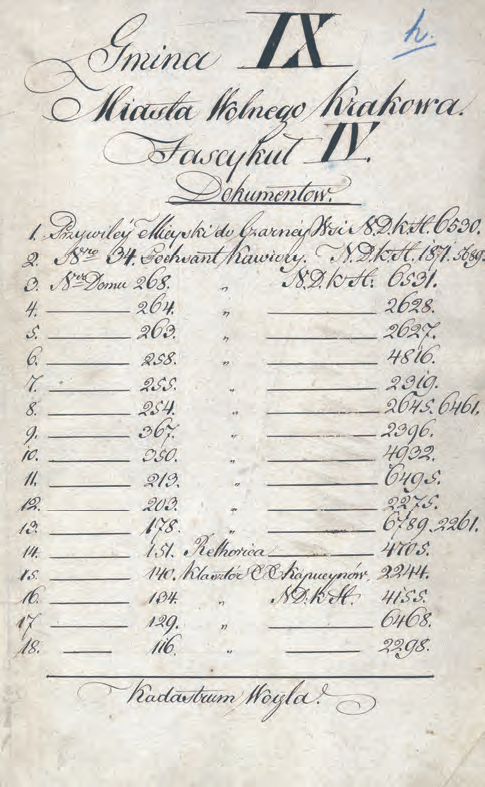 h.
Gmina IX
Miasta Wolnego Krakowa.
Fascykuł IV.
Dokumentow.
1. Przywiley Mieyski do Czarney Wsi N.D.k.H. 6530.
2. Nro 34. Kawiory. N.D.k.H. 187. 5689.
3. Ner Domu 268. „ N.D.k.H. 6531.
4. ——— 264. „ ——— 2628.
5. ——— 263. „ ——— 2627.
6. ——— 258. „ ——— 4816.
7. ——— 255. „ ——— 2319.
8. ——— 254. „ ——— 2645. 6461.
9. ——— 367. „ ——— 2396.
10. ——— 350. „ ——— 4932.
11. ——— 213. „ ——— 6495.
12. ——— 203. „ ——— 2275.
13. ——— 178. „ ——— 6789. 2261.
14. ——— 151. Rethorica ——— 4705.
15. ——— 140. Klasztór Kapucynów. 2244.
16. ——— 134. „ N.D.k.H. 4155.
17. ——— 129. „ ——— 6468.
18. ——— 116. „ ——— 2298.
Kadastrum Wogla.